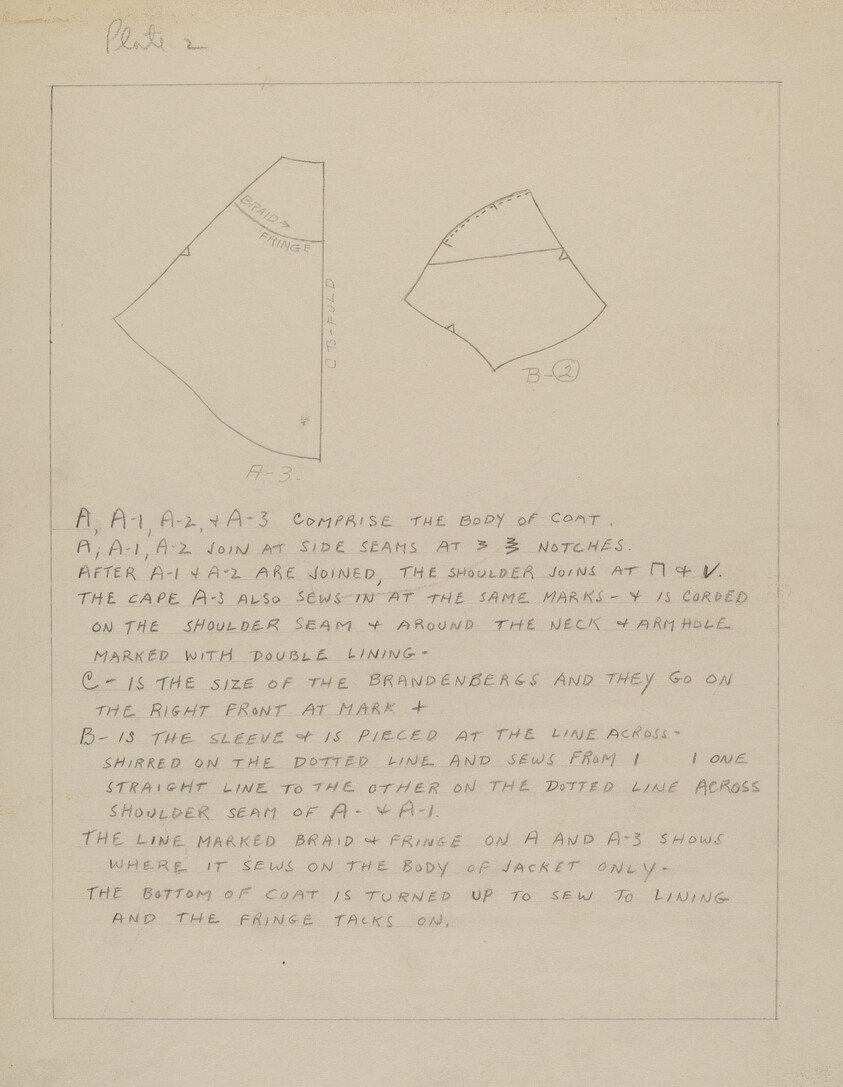 Plate 2
BRAID
FRINGE
CB-FOLD
A-3.
B-2
A, A-1, A-2, & A-3 COMPRISE THE BODY OF COAT.
A, A-1, A-2 JOIN AT SIDE SEAMS AT NOTCHES.
AFTER A-1 & A-2 ARE JOINED, THE SHOULDER JOINS AT Π & V.
THE CAPE A-3 ALSO SEWS IN AT THE SAME MARKS - & IS CORDED
ON THE SHOULDER SEAM & AROUND THE NECK & ARMHOLE
MARKED WITH DOUBLE LINING-
C- IS THE SIZE OF THE BRANDENBERGS AND THEY GO ON
THE RIGHT FRONT AT MARK +
B- IS THE SLEEVE & IS PIECED AT THE LINE ACROSS-
SHIRRED ON THE DOTTED LINE AND SEWS FROM I I ONE
STRAIGHT LINE TO THE OTHER ON THE DOTTED LINE ACROSS
SHOULDER SEAM OF A- & A-1.
THE LINE MARKED BRAID & FRINGE ON A AND A-3 SHOWS
WHERE IT SEWS ON THE BODY OF JACKET ONLY-
THE BOTTOM OF COAT IS TURNED UP TO SEW TO LINING
AND THE FRINGE TACKS ON.